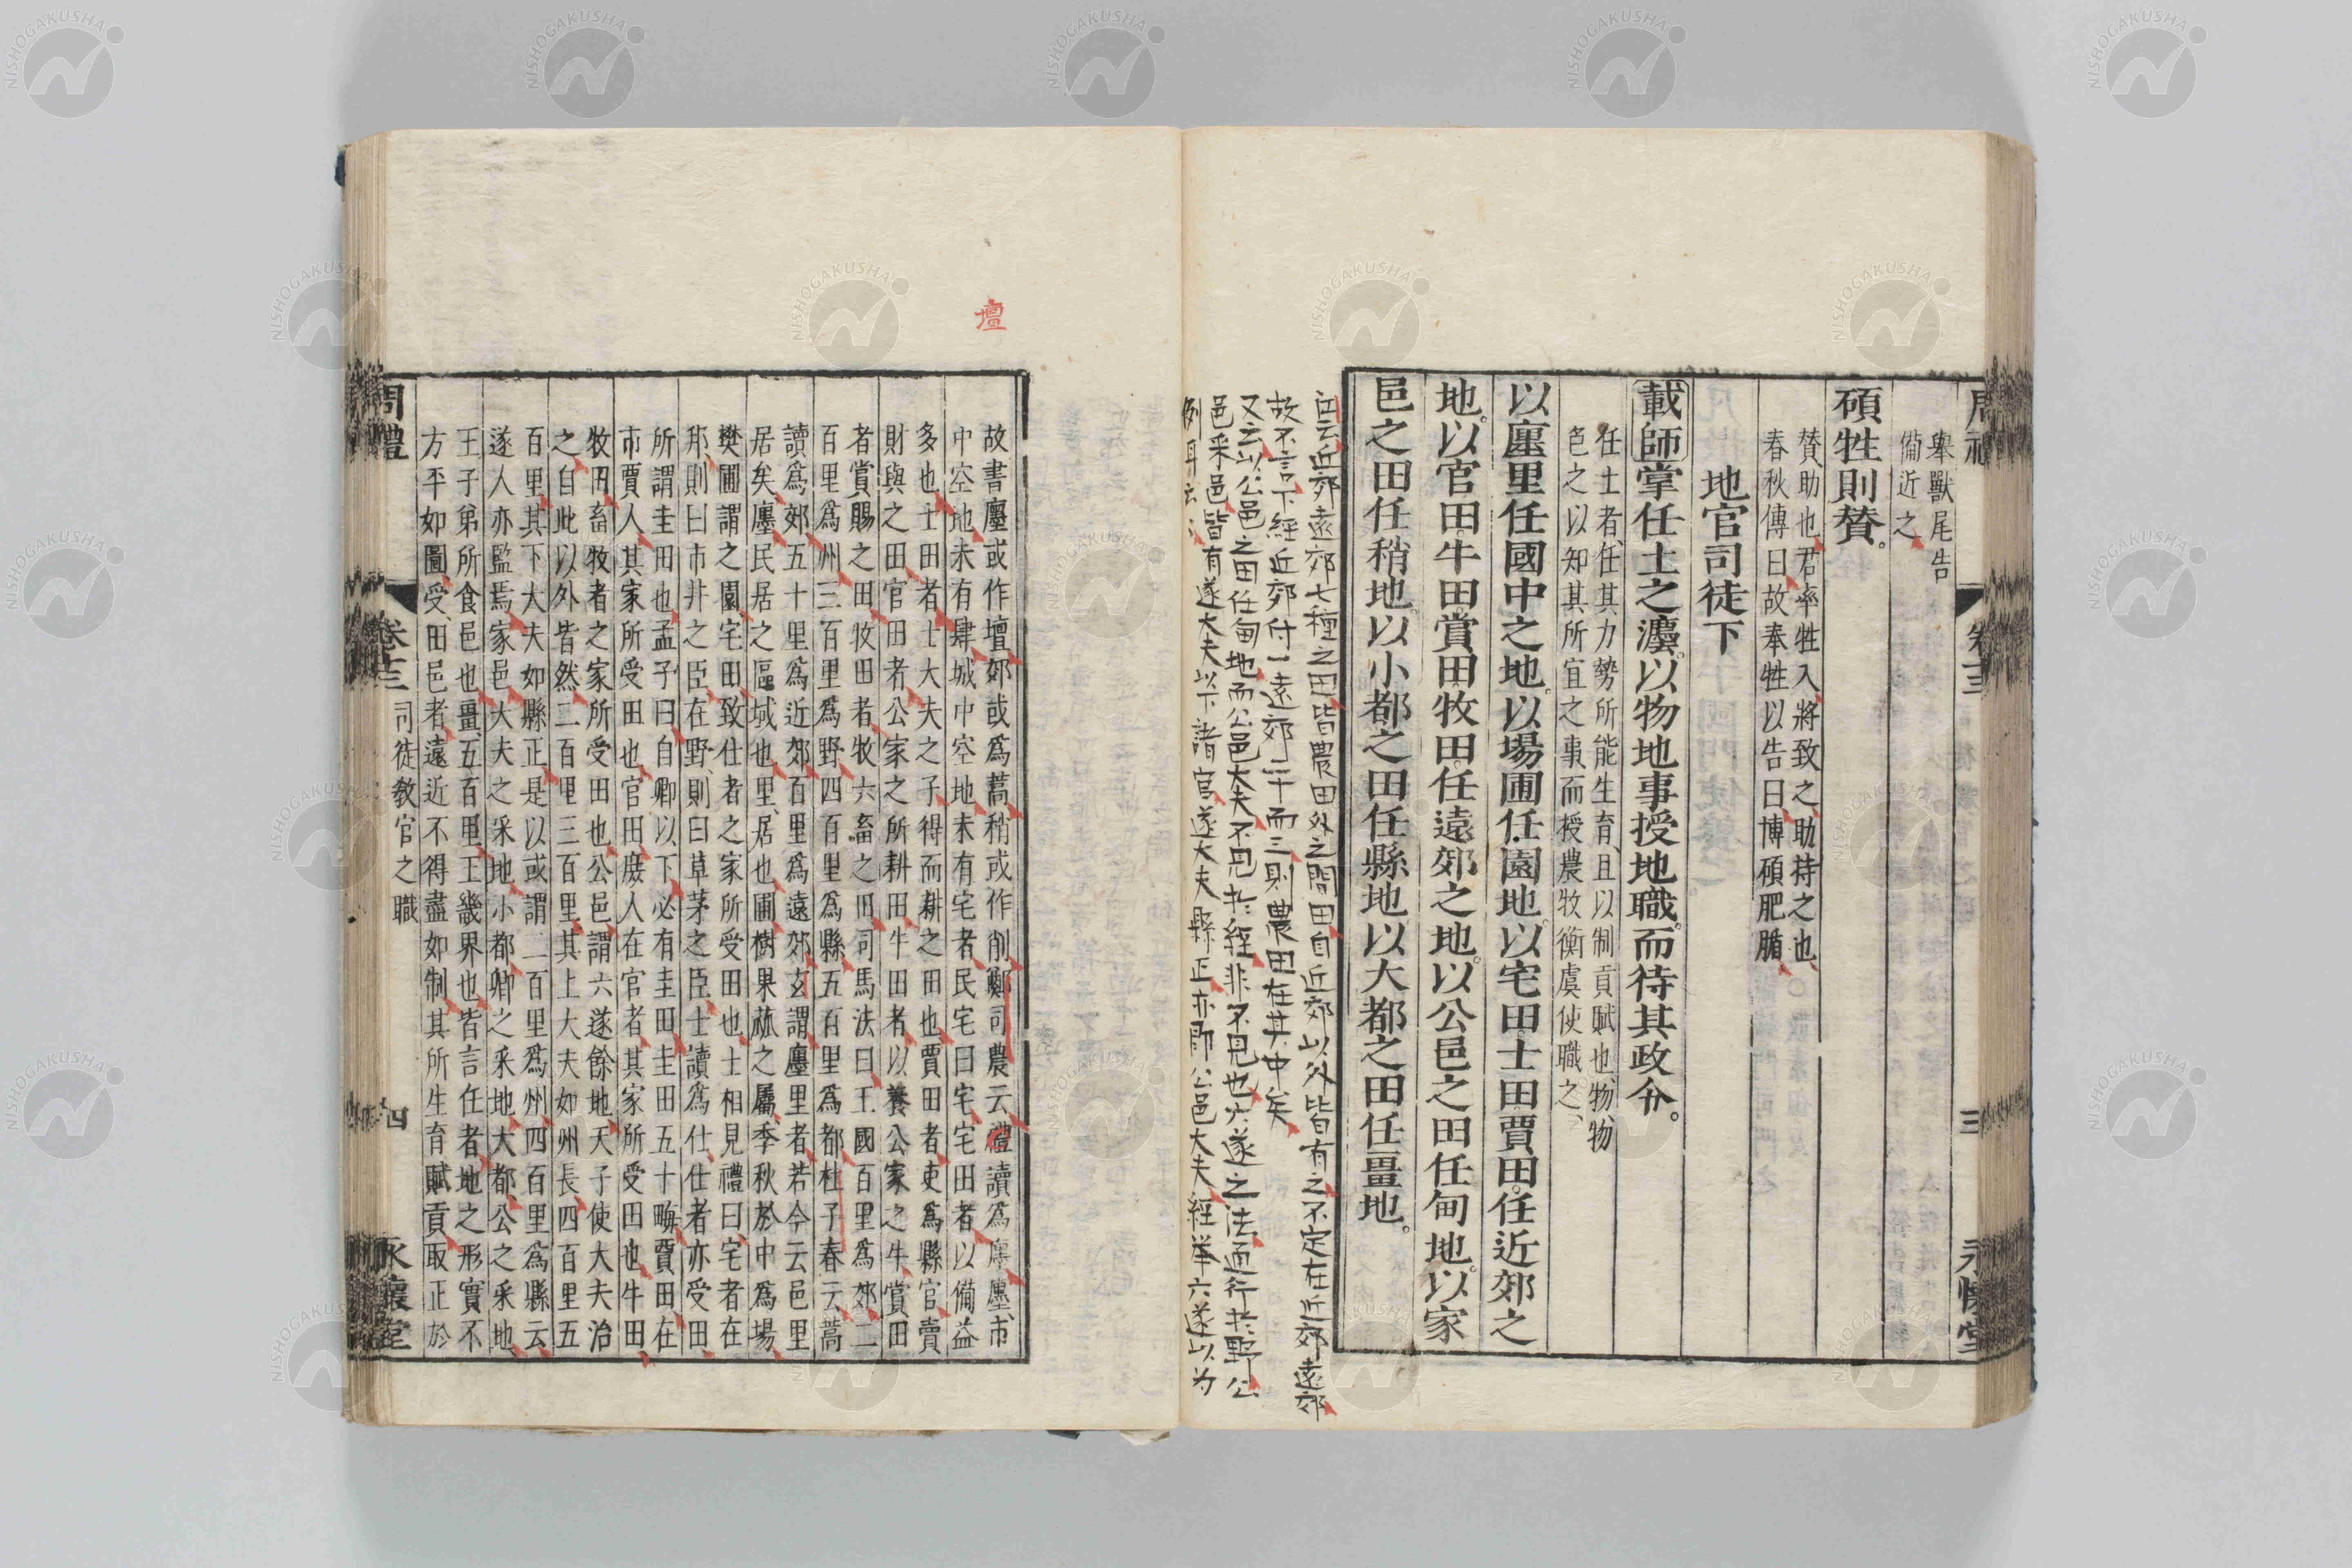 舉獸尾告
備近之
碩牲則贊。
贊助也君牽牲入將致之助持之也
春秋傳曰故奉牲以告曰博碩肥腯
地官司徒下
載師掌任土之灋以物地事授地職而待其政令。
任土者任其力勢所能生育且以制貢賦也物物
色之以知其所宜之事而授農牧衡虞使職之
以廛里任國中之地。以場圃任園地。以宅田士田賈田。任近郊之
地。以官田。牛田。賞田牧田任遠郊之地。以公邑之田任甸地。以家
邑之田任稍地。以小都之田任縣地以大都之田任畺地。
近郊遠郊七種之田皆農田外之閒田自近郊以外皆有之不定在近郊遠郊
故不言下經近郊付一遠郊二十而三則農田在其中矣
又云以公邑之田任甸地而公邑大夫不見於經非不見也六遂之法通行於野公
邑采邑皆有遂大夫以下諸官遂大夫縣正亦即公邑大夫經舉六遂以為
例耳
壇
故書廛或作壇郊或爲蒿稍或作削鄭司農云禮讀爲廛廛市
中空地未有肆城中空地未有宅者民宅曰宅宅田者以備益
多也士田者士大夫之子得而耕之田也賈田者吏爲縣官賣
財與之田官田者公家之所耕田牛田者以養公家之牛賞田
者賞賜之田牧田者牧六畜之田司馬法曰王國百里爲郊二
百里爲州三百里爲野四百里爲縣五百里爲都杜子春云蒿
讀爲郊五十里爲近郊百里爲遠郊玄謂廛里者若今云邑里
居矣廛民居之區域也里居也圃樹果蓏之屬季秋於中爲場
樊圃謂之園宅田致仕者之家所受田也士相見禮曰宅者在
邦則曰市井之臣在野則曰草茅之臣士讀爲仕仕者亦受田
所謂圭田也孟子曰自卿以下必有圭田圭田五十畮賈田在
市賈人其家所受田也官田庶人在官者其家所受田也牛田
牧田畜牧者之家所受田也公邑謂六遂餘地天子使大夫治
之自此以外皆然二百里三百里其上大夫如州長四百里五
百里其下大夫如縣正是以或謂二百里爲州四百里爲縣云
遂人亦監焉家邑大夫之采地小都卿之采地大都公之采地
王子弟所食邑也畺五百里王畿界也皆言任者地之形實不
方平如圖受田邑者遠近不得盡如制其所生育賦貢取正於
周禮 卷十三 司徒教官之職 四 永懷堂